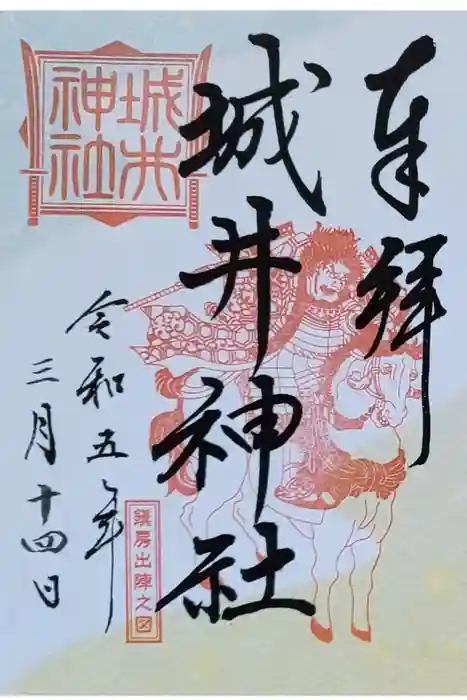 奉拝
城井神社
城井神社
令和五年
三月十四日
鎮房出陣之図